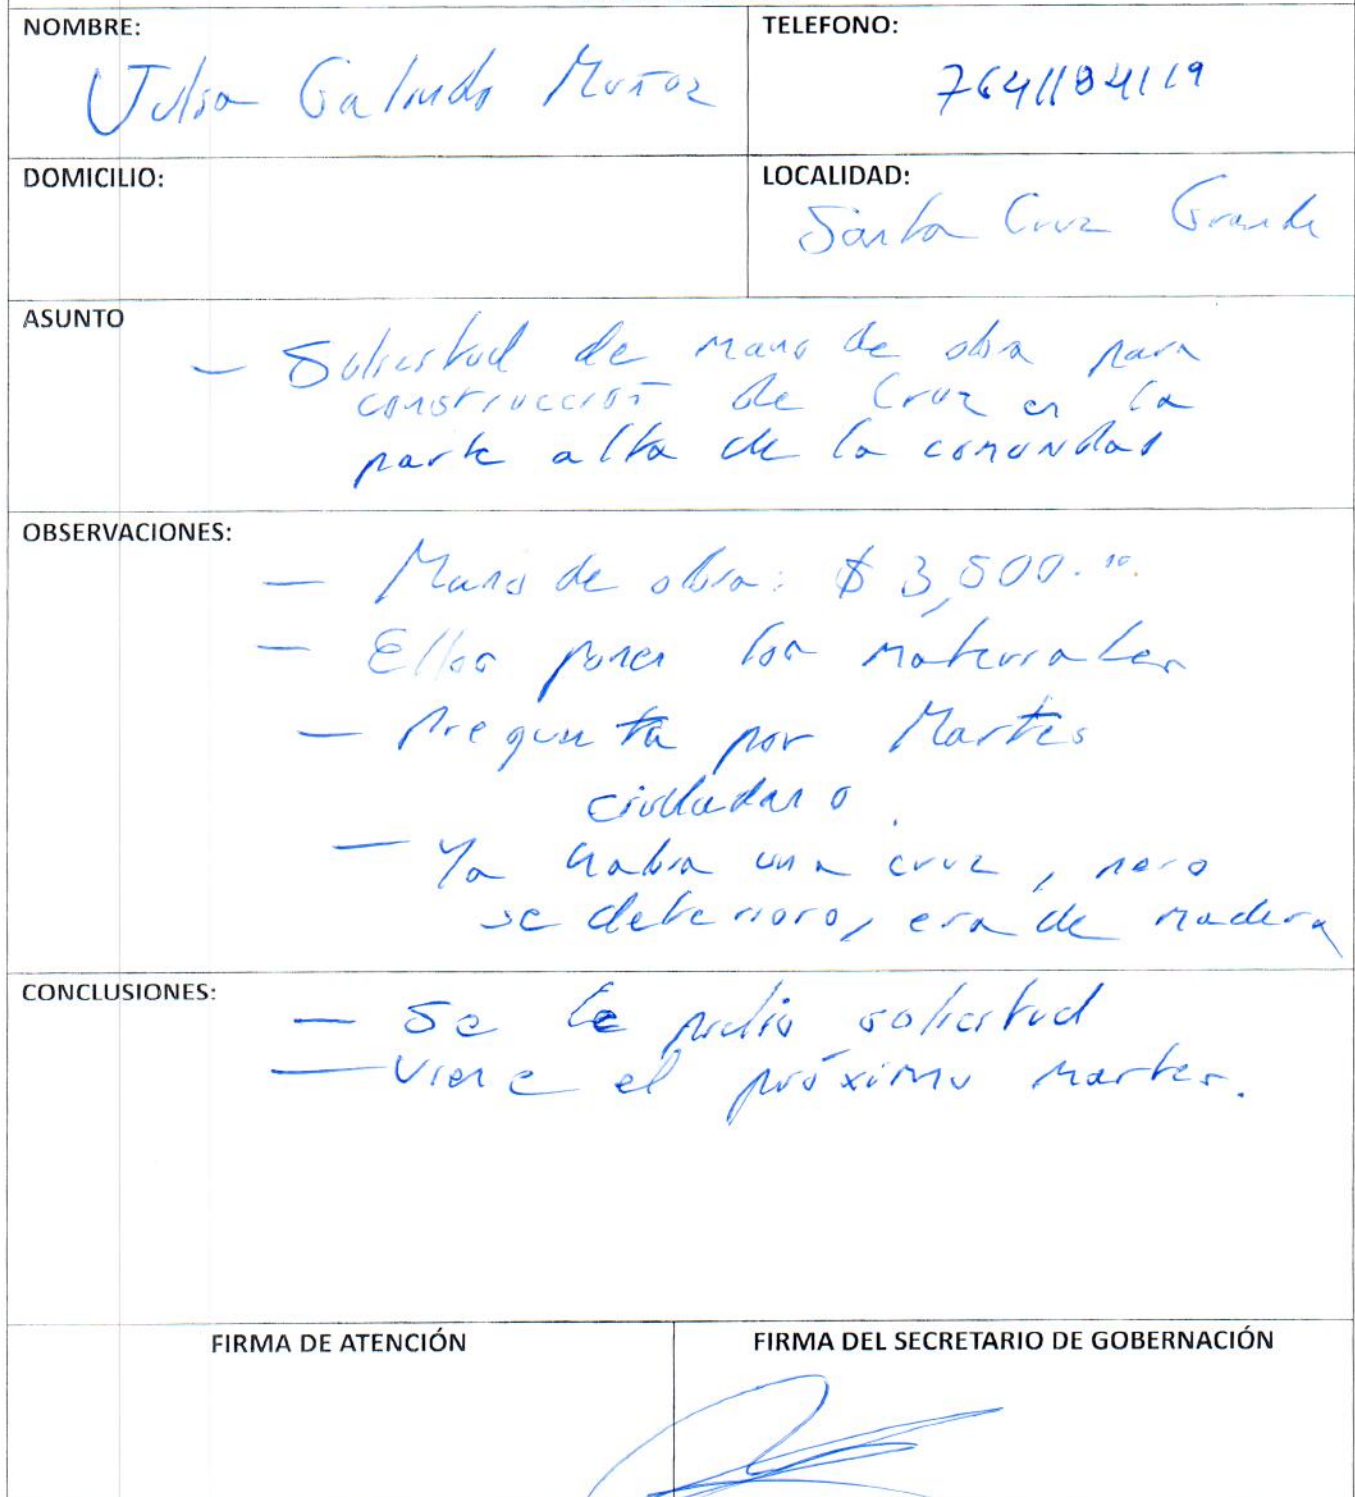 NOMBRE:
Julia Galindo Muñoz
TELEFONO:
7641184119
DOMICILIO:
LOCALIDAD:
Santa Cruz Grande
ASUNTO
- Solicitud de mano de obra para
construcción de Cruz en la
parte alta de la comunidad
OBSERVACIONES:
- Mano de obra: $ 3,500.⁰⁰
- Ellos ponen los materiales
- Pregunta por Martes
ciudadano.
- Ya habia una cruz, pero
se deterioro, era de madera
CONCLUSIONES:
- Se le pidio solicitud
- Viene el próximo martes.
FIRMA DE ATENCIÓN
FIRMA DEL SECRETARIO DE GOBERNACIÓN